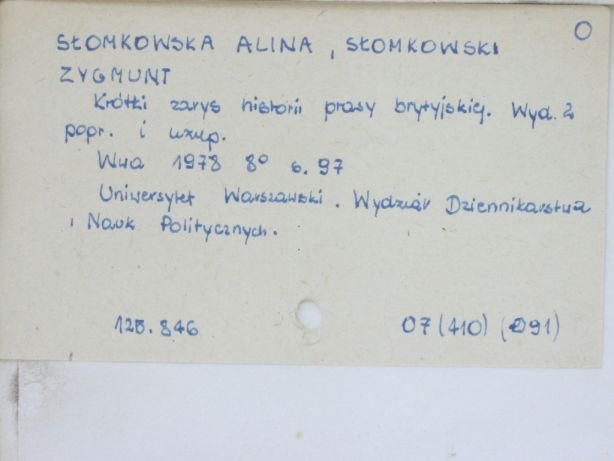 O
SŁOMKOWSKA ALINA, SŁOMKOWSKI
ZYGMUNT
Krótki zarys historii prasy brytyjskiej. Wyd. 2
popr. i uzup.
Wwa 1978 8° s. 97
Uniwersytet Warszawski. Wydział Dziennikarstwa
i Nauk Politycznych.
128.846 07(410)(091)